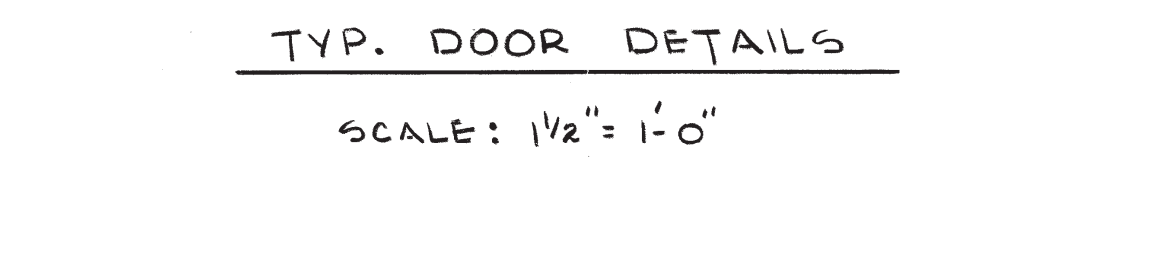 TYP. DOOR DETAILS
SCALE: 1 1/2" = 1'-0"